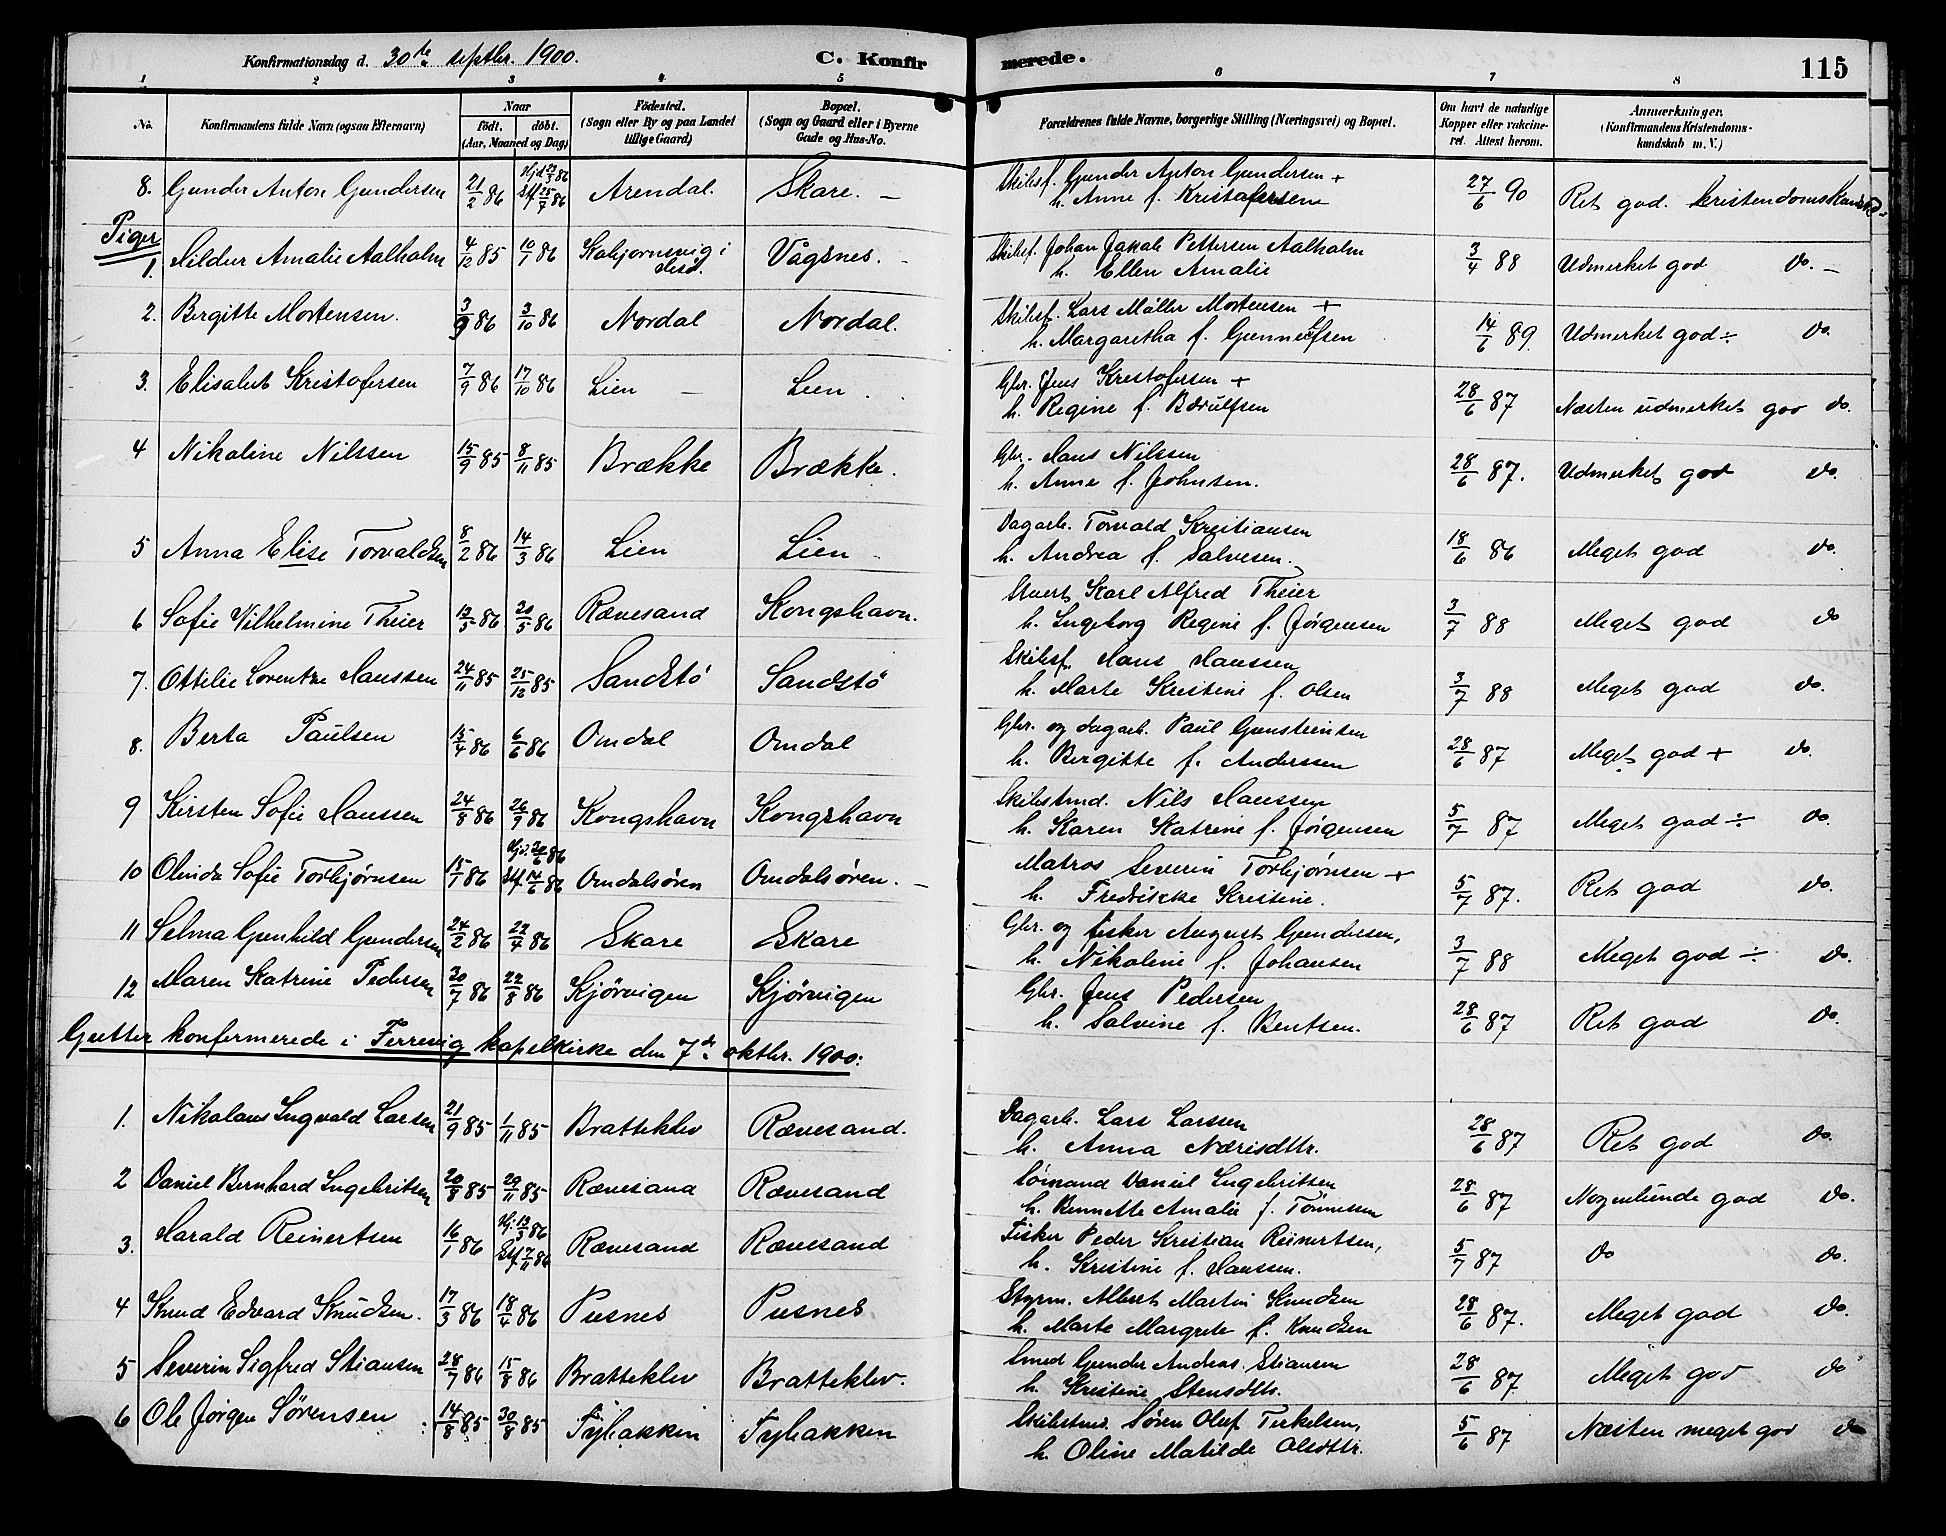 Konfirmationsdag d. 30te septbr. 1900. C. Konfirmerede. 115
1 2 3 4 5 6 7 8
No. Konfirmandens fulde Navn (ogsaa Efternavn) Naar født. døbt. (Aar, Maaned og Dag) Födested. (Sogn eller By og paa Landet tillige Gaard) Bopæl. (Sogn og Gaard eller i Byerne Gade og Hus-No. Forældrenes fulde Navne, borgerlige Stilling (Næringsvei) og Bopæl. Om havt de naturlige Kopper eller vakcineret. Attest herom. Anmærkninger. (Konfirmandens Kristendomskundskab m. V.)
8. Gunder Anton Gundersen 21/2 86 Hjd 23/3 86 Stf 25/7 86 Arendal. Skare. — Skibsf. Gunder Anton Gundersen + 27/6 90 Ret god. kristendomskundsk.
h. Anne f. Kristofersen
Piger
1. Amalie Aalholm 4/12 85 10/1 86 Vågsnes. - Skibsf. Johan Jakob Pettersen Aalholm 3/4 88 Udmerket god do. —
h. Ellen Amalie
2. Birgitte Mortensen. 3/9 86 3/10 86 Nordal Nordal. Skibsf. Lars Møller Mortensen + 14/6 89. Udmerket god ÷ do.
h. Margaretha f. Gunneufsen
3. Elisabet Kristofersen 7/9 86 17/10 86 Lien — Lien . Gbr. Jens Kristofersen + 28/6 87 Næsten udmerket god do.
h. Regine f. Børulfsen
4 Nikoline Nilssen 15/9 85 8/11 85 Brække Brække. Gbr. Hans Nilssen 28/6 87. Udmerket god do.
h. Anne f. Johnsen.
5 Anna Elise Torvaldsen 8/2 86 14/3 86 Lien Lien - Dagarb. Torvald Kristiansen 18/6 86 Meget god do.
h. Andrea f. Salvesen.
6 Sofie Vilhelmine Theier 13/3 86 20/5 86 Rævesand Kongshavn. Stuert Karl Alfred Theier 3/7 88 Meget god do
h. Ingeborg Regine f. Jørgensen
7. Ottilie Lorentze Hanssen 24/11 85 25/12 85 Sandstø Sandstø Skibsf. Hans Hanssen 3/7 88 Meget god do.
h. Marte Kristine f. Olsen
8. Berta Paulsen 15/4 86 6/6 86 Omdal Omdal Gbr. og dagarb. Paul Gunsteinsen 28/6 87 Meget god + do.
h. Birgitte f. Anderssen
9 Kirsten Sofie Hanssen 24/8 86 26/9 86 Kongshavn Kongshavn Skibstmd. Nils Hanssen 5/7 87 Meget god ÷ do.
h. Karen Katrine f. Jørgensen
10 Olinda Sofie Torbjørnsen 15/1 86 Omdalsøren Omdalsøren. — Matros Severin Torbjørnsen + 5/7 87. Ret god do.
h. Fredrikke Kristine.
11 Selma Gunhild Gundersen 24/2 86 22/4 86 Skare Skare Gbr. og fisker August Gundersen, 3/7 88 Meget god ÷ do.
h. Nikoline f. Johansen
12 Maren Katrine Pedersen 30/7 86 22/8 86 Kjørvigen Kjørvigen Gbr. Jens Pedersen 28/6 87 Ret god do.
h. Salvine f. Bentsen.
Gutter konfermerede i Færvig kapelkirke den 7de oktbr. 1900:
1. Nikolaus Ingvald Larsen 21/9 85 1/11 85 Bratteklev Rævesand. Dagarb. Lars Larssen 28/6 87 Ret god do.
h. Anna Nærisdttr.
2 Daniel Bernhard Ingebritsen 20/8 85 29/11 85 Rævesand Rævesand Sømand Daniel Ingebritsen 28/6 87 Nogenlunde god do.
h. Bennette Amalie f. Tønnessen
3. Harald Reinertsen 16/1 86 Hj. 13/3 86 Stf. 7/11 86 Rævesand Rævesand Fisker Peder Kristian Reinertsen, 5/7 87 do do.
h. Kristine f. Hanssen.
4 Knud Edvard Knudsen. 17/3 86 18/4 86 Pusnes Pusnes Styrm. Albert Martin Knudsen 28/6 87. Meget god do.
h. Marte Margrete f. Knudsen
5 Severin Sigfred Stiansen 28/7 86 15/8 86 Bratteklev Bratteklev. Smed Gunder Andreas Stiansen 28/6 87 Meget god do
h. Kristine Stensdttr.
6 Ole Jørgen Sørensen 14/8 85 30/8 85 Tybakken Tybakken Skibstmd. Søren Oluf Terkelsen, 5/6 87 Næsten meget god do
h. Oline Matilde Olsdttr.